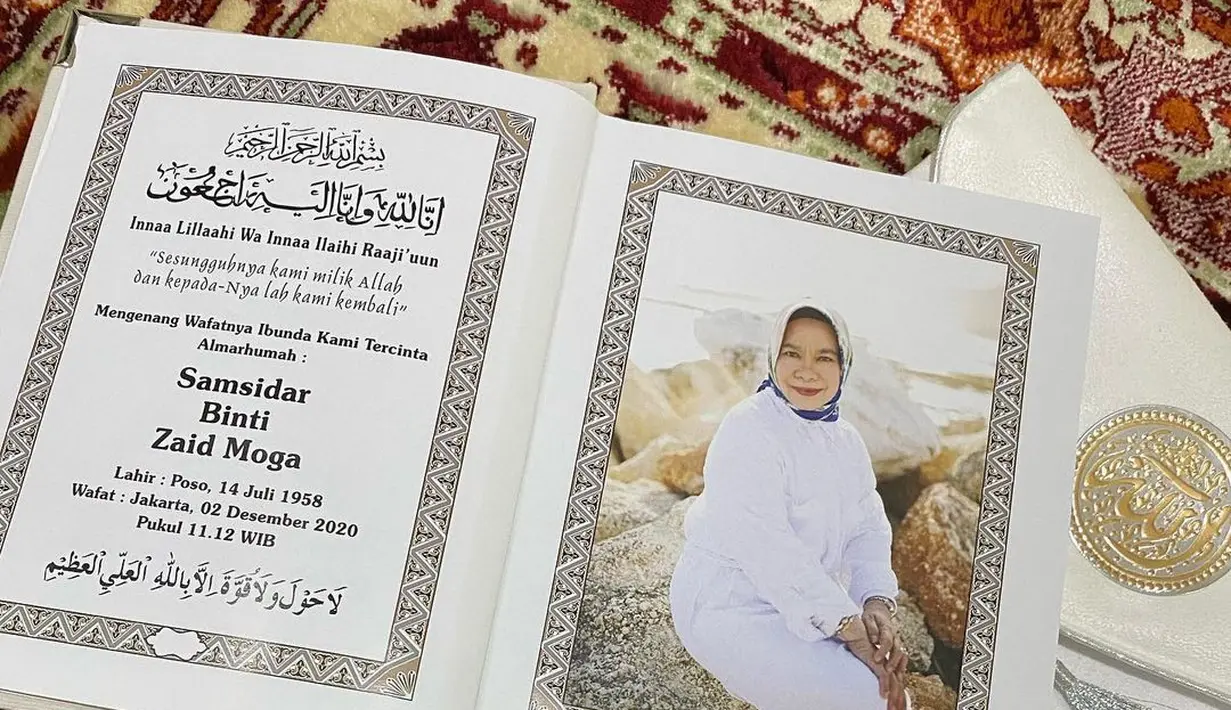 بِسْمِ اللهِ الرَّحْمٰنِ الرَّحِيْمِ
اِنَّا لِلّٰهِ وَاِنَّا اِلَيْهِ رَاجِعُوْنَ
Innaa Lillaahi Wa Innaa Ilaihi Raaji'uun
"Sesungguhnya kami milik Allah
dan kepada-Nya lah kami kembali"
Mengenang Wafatnya Ibunda Kami Tercinta
Almarhumah :
Samsidar
Binti
Zaid Moga
Lahir : Poso, 14 Juli 1958
Wafat : Jakarta, 02 Desember 2020
Pukul 11.12 WIB
لَا حَوْلَ وَلَا قُوَّةَ اِلَّا بِاللهِ الْعَلِيِّ الْعَظِيْمِ